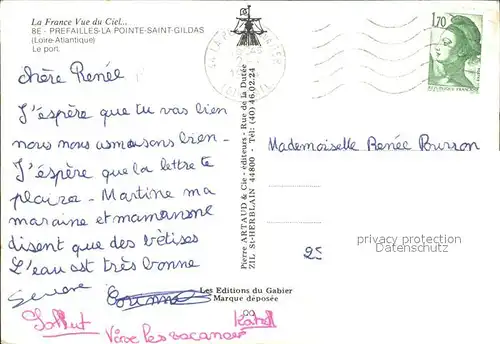 La France Vue du Ciel...
8E - PREFAILLES-LA POINTE-SAINT-GILDAS
(Loire-Atlantique)
Le port.
chère Renée
J'éspère que tu vas bien
nous nous amusons bien -
J'éspère que la lettre te
plaira - Martine ma
maraine et maman ne
disent que des bêtises
L'eau est très bonne
Corinne
Salut
Vive les vacances
Pierre ARTAUD & Cie - éditeurs - Rue de la Dutée
ZIL St-HERBLAIN 44800 - Tél: (40) 46.02.24
Les Editions du Gabier
Marque déposée
1,70
REPUBLIQUE FRANÇAISE
Mademoiselle Renée Pourron
25
privacy protection
Datenschutz